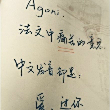 Agoni.
法文中痛苦的意思
中文发音却是:
爱过你